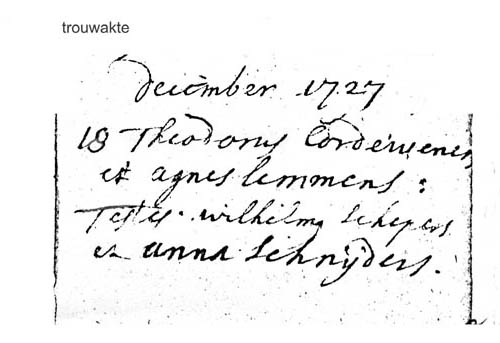 trouwakte
december 1727
18 Theodorus Corderwener
et agnes lemmens :
Testes. wilhelmg Schepers
et anna Schnijders.